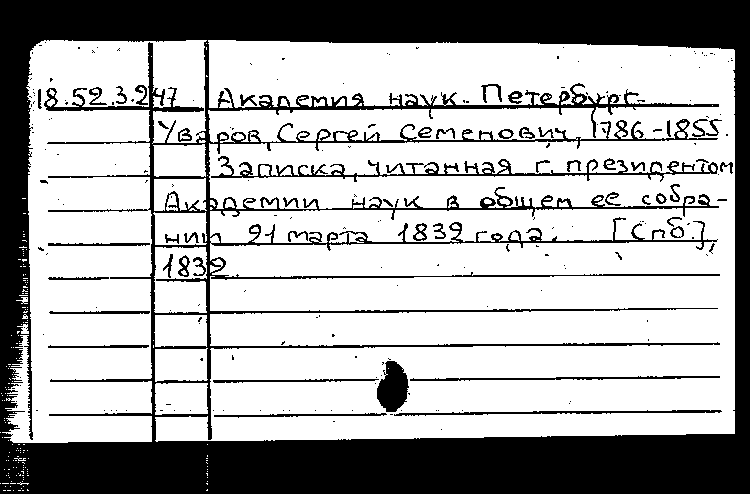 18.52.3.247 Академия наук. Петербург.
Уваров, Сергей Семенович, 1786-1855.
Записка, читанная г. президентом
Академии наук в общем ее собра-
нии 21 марта 1832 года. [Спб.],
1832